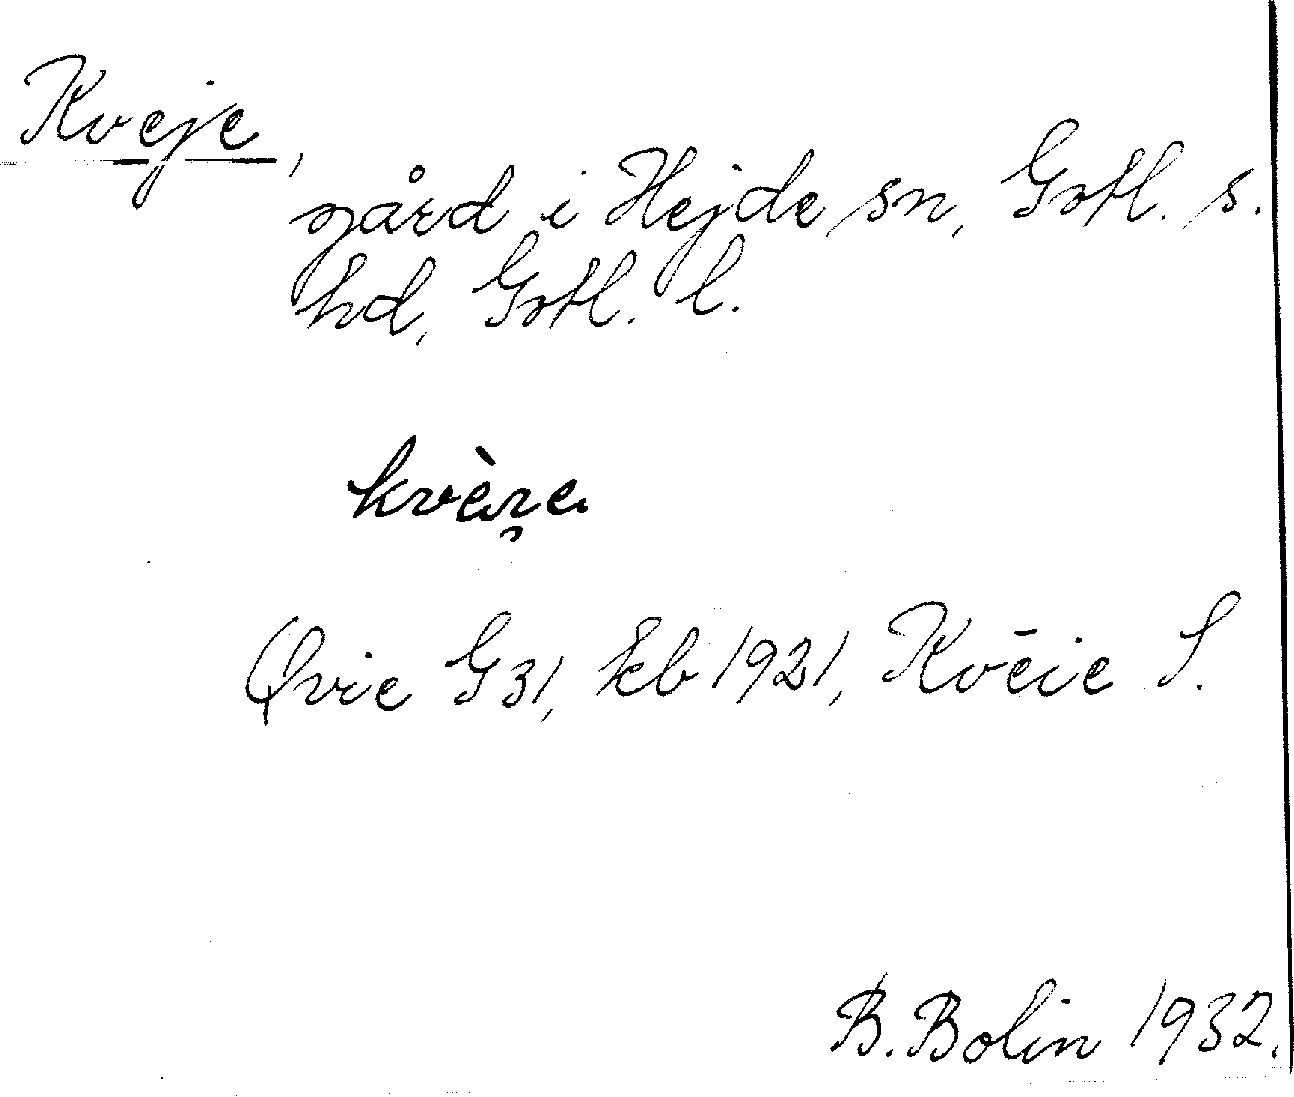 Kveje,
gård i Hejde sn, Gotl. s.
hd, Gotl. l.
Qvie G 31, kb 1921, Kvēie S.
B. Bolin 1932.